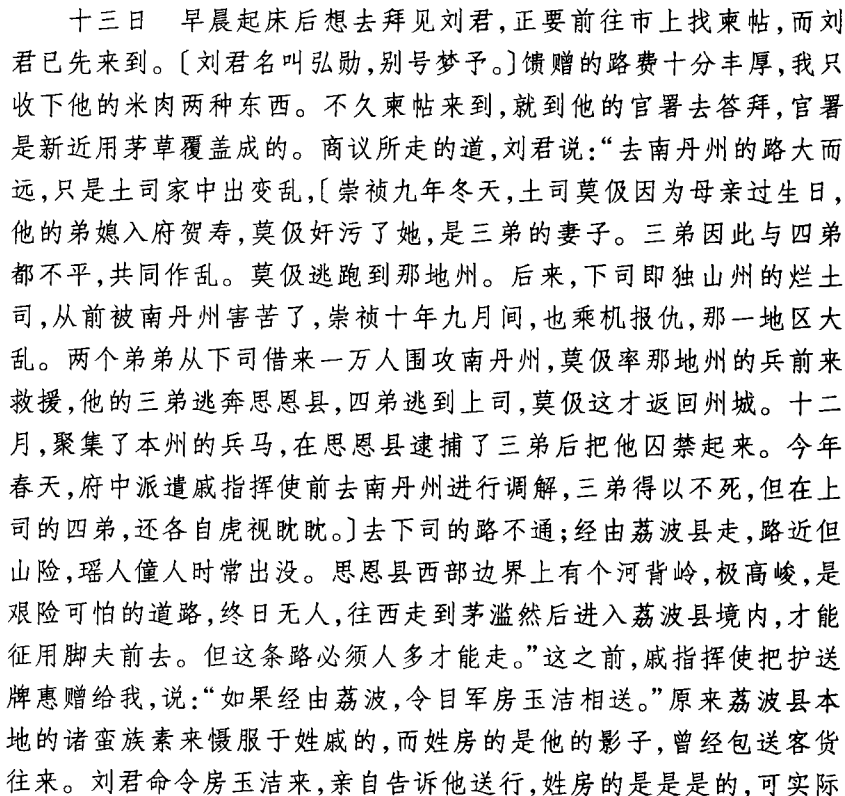 十三日　早晨起床后想去拜见刘君,正要前往市上找柬帖,而刘
君已先来到。〔刘君名叫弘勋,别号梦予。〕馈赠的路费十分丰厚,我只
收下他的米肉两种东西。不久柬帖来到,就到他的官署去答拜,官署
是新近用茅草覆盖成的。商议所走的道,刘君说:“去南丹州的路大而
远,只是土司家中出变乱,〔崇祯九年冬天,土司莫伋因为母亲过生日,
他的弟媳入府贺寿,莫伋奸污了她,是三弟的妻子。三弟因此与四弟
都不平,共同作乱。莫伋逃跑到那地州。后来,下司即独山州的烂土
司,从前被南丹州害苦了,崇祯十年九月间,也乘机报仇,那一地区大
乱。两个弟弟从下司借来一万人围攻南丹州,莫伋率那地州的兵前来
救援,他的三弟逃奔思恩县,四弟逃到上司,莫伋这才返回州城。十二
月,聚集了本州的兵马,在思恩县逮捕了三弟后把他囚禁起来。今年
春天,府中派遣戚指挥使前去南丹州进行调解,三弟得以不死,但在上
司的四弟,还各自虎视眈眈。〕去下司的路不通;经由荔波县走,路近但
山险,瑶人僮人时常出没。思恩县西部边界上有个河背岭,极高峻,是
艰险可怕的道路,终日无人,往西走到茅滥然后进入荔波县境内,才能
征用脚夫前去。但这条路必须人多才能走。”这之前,戚指挥使把护送
牌惠赠给我,说:“如果经由荔波,令目军房玉洁相送。”原来荔波县本
地的诸蛮族素来慑服于姓戚的,而姓房的是他的影子,曾经包送客货
往来。刘君命令房玉洁来,亲自告诉他送行,姓房的是是是的,可实际